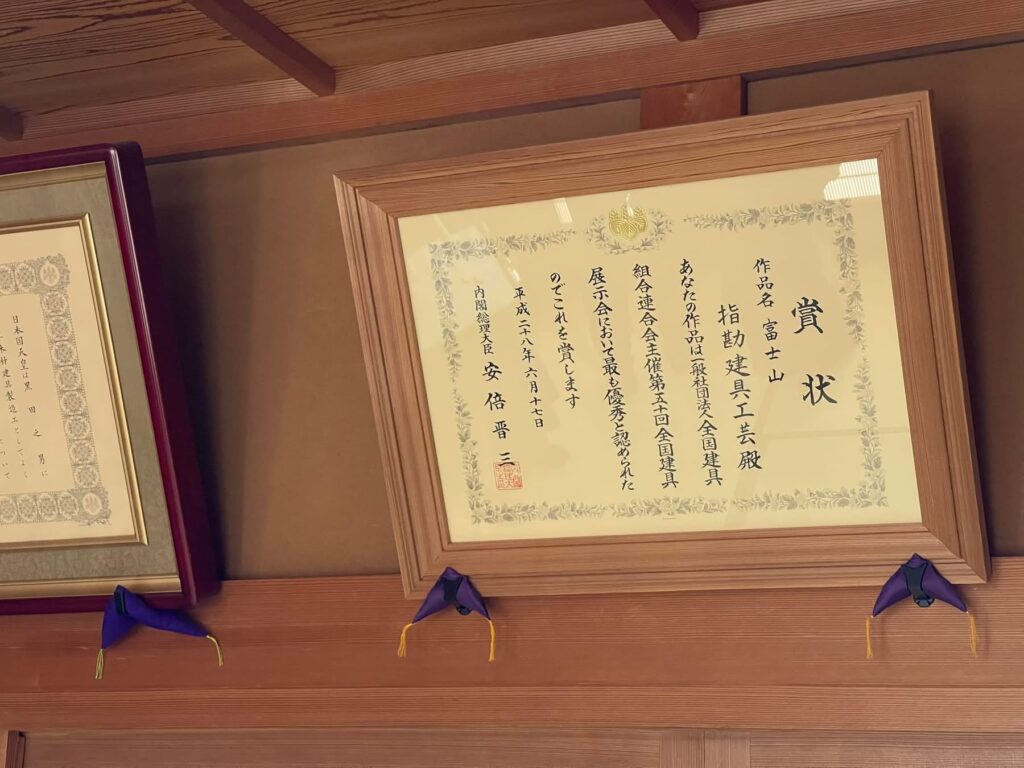 賞状
作品名 富士山
指勘建具工芸殿
あなたの作品は一般社団法人全国建具
組合連合会主催第五十回全国建具
展示会において最も優秀と認められた
のでこれを賞します
平成二八年六月十七日
内閣総理大臣 安倍晋三
日本国天皇は黒田之男に
建具製造工としてよく
について